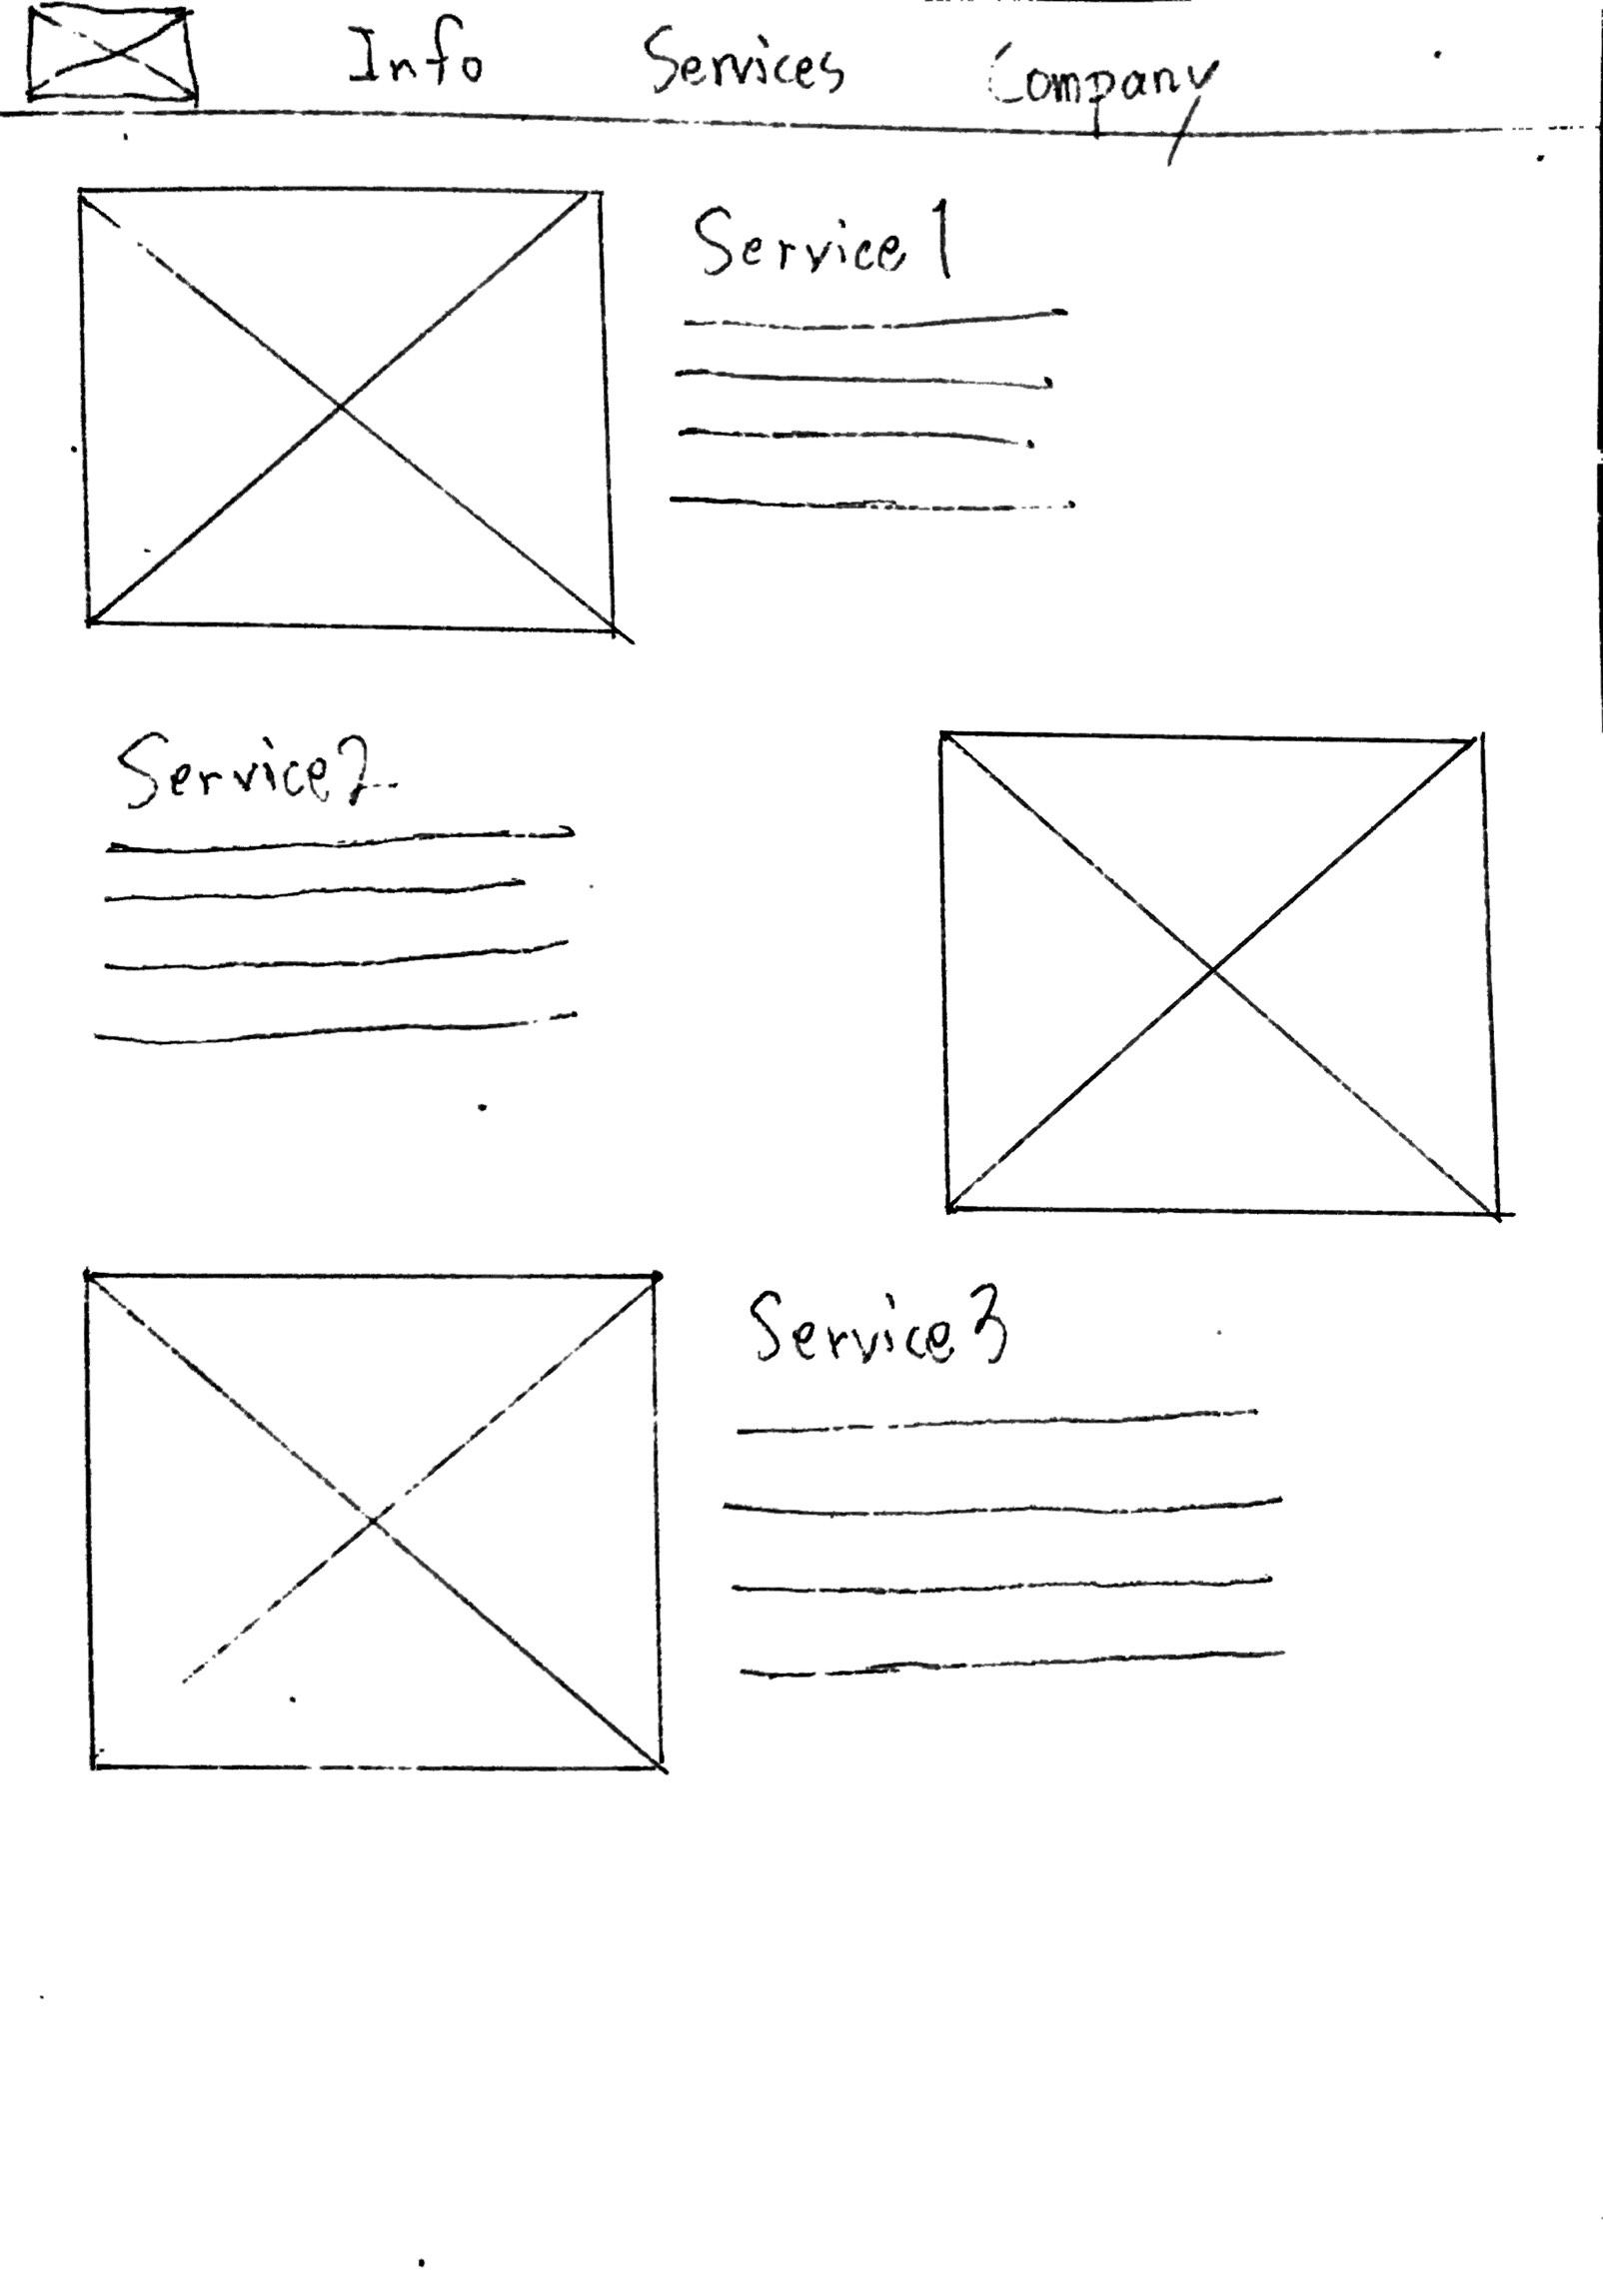 Info Services Company
Service 1
Service 2
Service 3